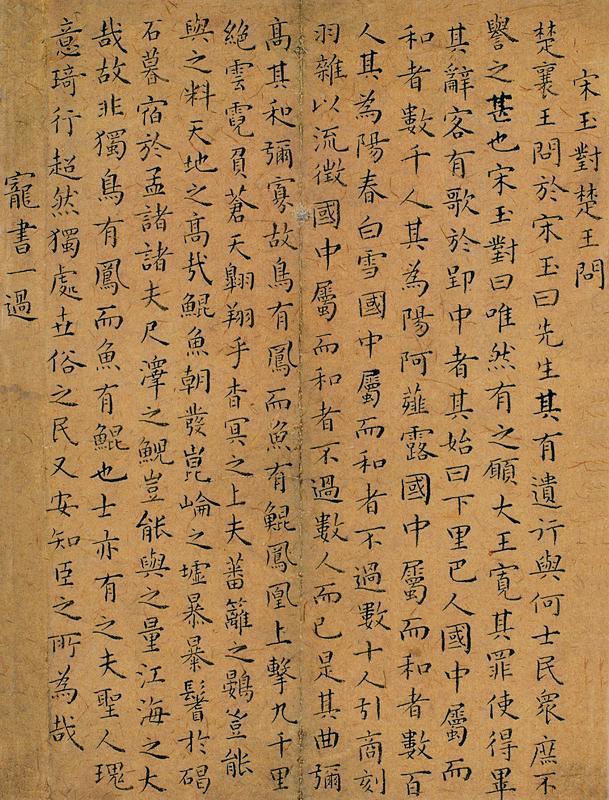 宋玉對楚王問
楚襄王問於宋玉曰先生其有遺行與何士民衆庶不
譽之甚也宋玉對曰唯然有之願大王寬其罪使得畢
其辭客有歌於郢中者其始曰下里巴人國中屬而
和者數千人其為陽阿薤露國中屬而和者數百
人其為陽春白雪國中屬而和者不過數十人引商刻
羽雜以流徵國中屬而和者不過數人而已是其曲彌
高其和彌寡故鳥有鳳而魚有鯤鳳凰上擊九千里
絕雲霓負蒼天翱翔乎杳冥之上夫蕃籬之鷃豈能
與之料天地之高哉鯤魚朝發崑崙之墟暴鬐於碣
石暮宿於孟諸諸夫尺澤之鯢豈能與之量江海之大
哉故非獨鳥有鳳而魚有鯤也士亦有之夫聖人瑰
意琦行超然獨處世俗之民又安知臣之所為哉
寵書一過